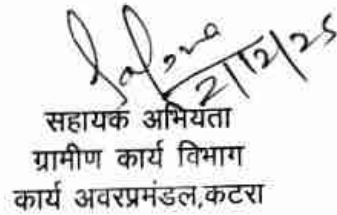 2/12/25
सहायक अभियंता
ग्रामीण कार्य विभाग
कार्य अवरप्रमंडल,कटरा